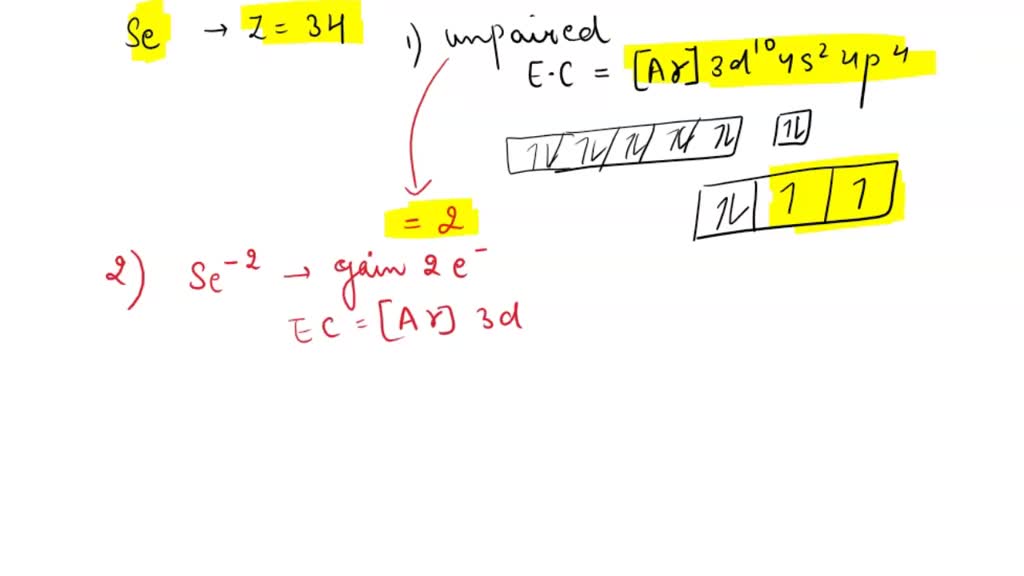 Se → Z = 34
1) unpaired
E.C = [Ar] 3d¹⁰ 4s² 4p⁴
1L 1L 1L 1L 1L 1L
1L 1 1
= 2
2) Se⁻² → gain 2e⁻
EC = [Ar] 3d